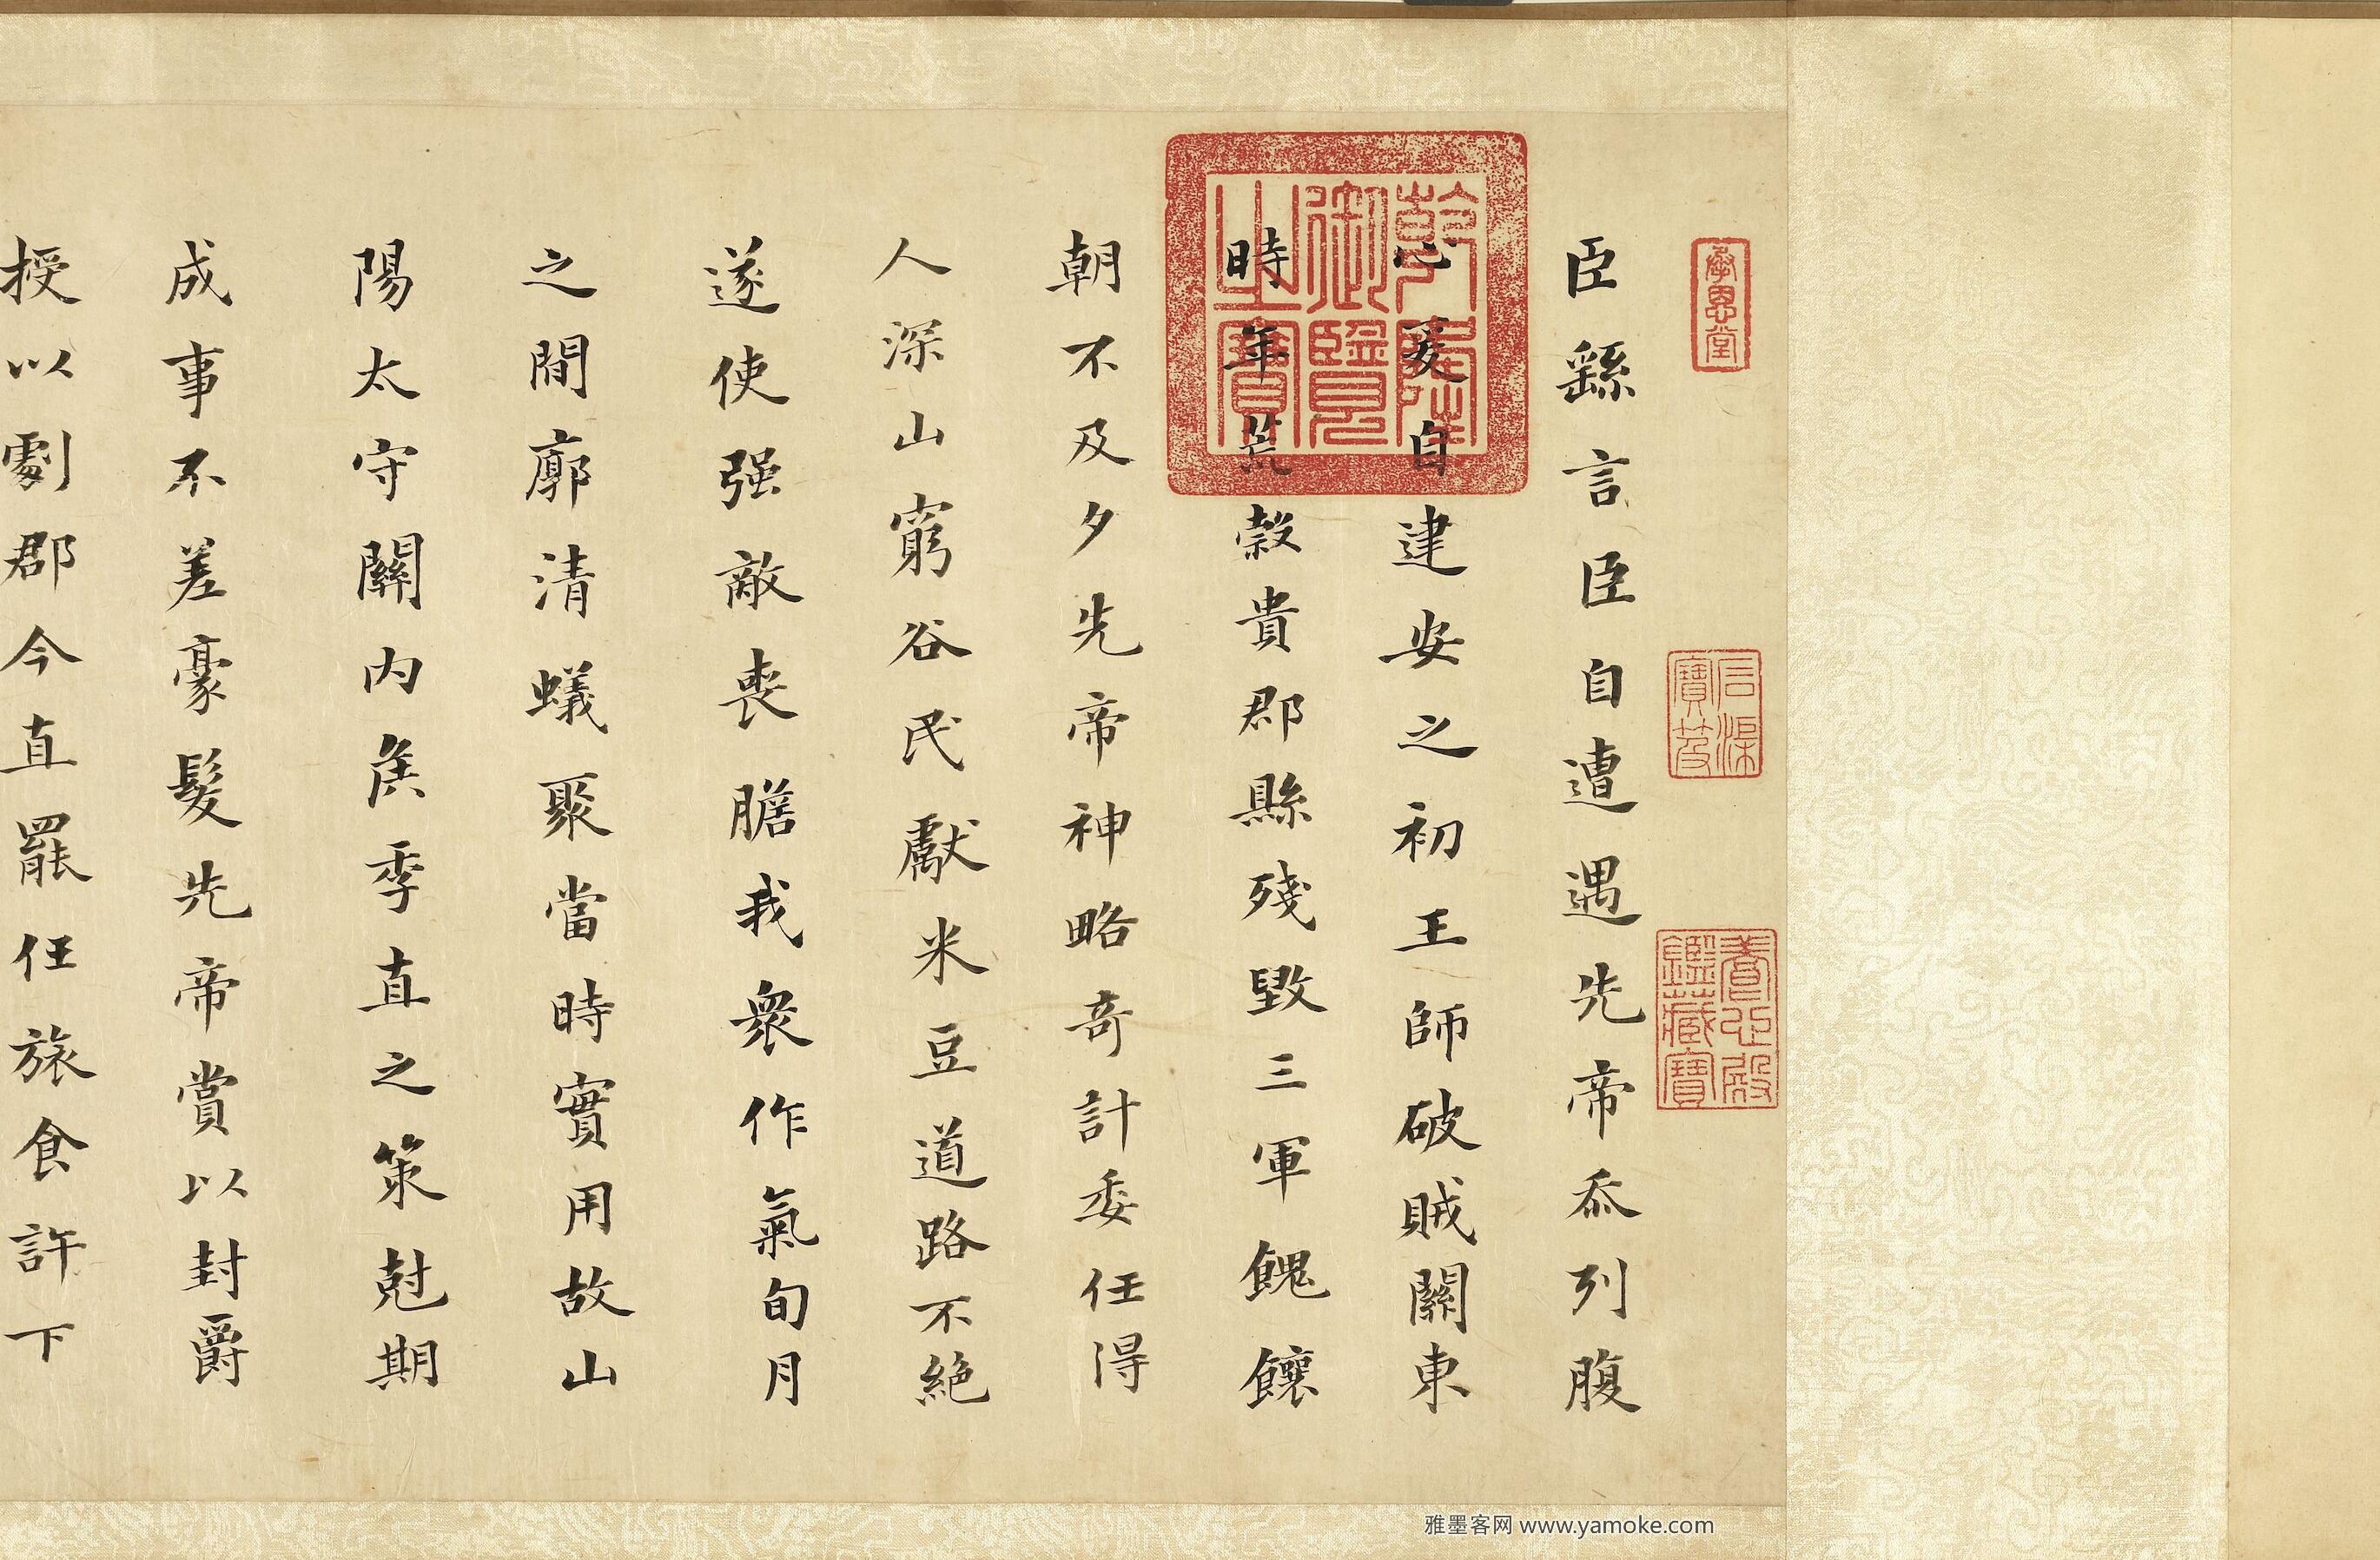 臣繇言臣自遭遇先帝忝列腹
心爰自建安之初王師破賊關東
時年荒穀貴郡縣殘毀三軍餽饟
朝不及夕先帝神略奇計委任得
人深山窮谷民獻米豆道路不絕
遂使强敵喪膽我衆作氣旬月
之間廓清蟻聚當時實用故山
陽太守關內矦季直之策尅期
成事不差豪髮先帝賞以封爵
授以劇郡今直罷任旅食許下
承恩堂
乾隆御覽之寶
石渠寶笈
養心殿鑑藏寶
雅墨客网 www.yamoke.com